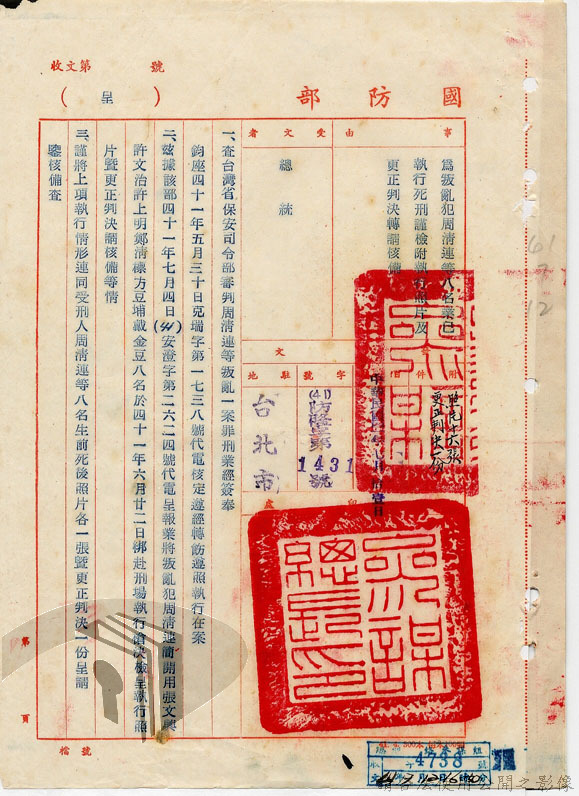 收文第 號
國防部
(呈)
事由
為叛亂犯周清連等八名業已
執行死刑謹檢附執行照片及
更正判決轉請核備
受文者
總統
附件
照片十六張
更正判決一份
字號
(41)防隆字第1431號
駐地
台北市
一、查台灣省保安司令部審判周清連等叛亂一案罪刑業經簽奉
鈞座四十一年五月三十日克瑞字第一七三八號代電核定遵經轉飭遵照執行在案
二、茲據該部四十一年七月四日(41)安澄字第二六二四號代電呈報業將叛亂犯周清連簡開用張文興
許文治許上明鄭清標方豆埔戴金豆八名於四十一年六月廿二日綁赴刑場執行槍決檢呈執行照
片暨更正判決請核備等情
三、謹將上項執行情形連同受刑人周清連等八名生前死後照片各一張暨更正判決一份呈請
鑒核備查
參謀總長印
第 頁
檔號
4738
61
7
12
請合法使用公開之影像